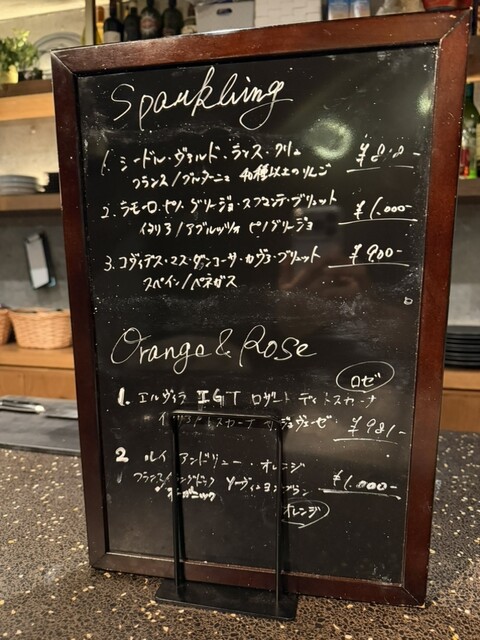 Sparkling
1. シードル・ヴァルド・ランス・クリュ ¥808-
フランス/ブルターニュ 40種以上のりんご
2. ラモーロ・ピノ・グリージョ・スプマンテ・ブリュット ¥1.000-
イタリア/アブルッツォ ピノグリージョ
3. コヴィデス・マス・ダンコーサ・カヴァ・ブリュット ¥900-
スペイン/ペネデス
Orange & Rose
ロゼ
1. エルヴィラ IGT ロザート ディ トスカーナ
イタリア/トスカーナ サンジョヴェーゼ ¥981-
2 ルイ アンドリュー・オレンジ
フランス/ラングドック ソーヴィニヨンブラン ¥1.000-
オーガニック
オレンジ